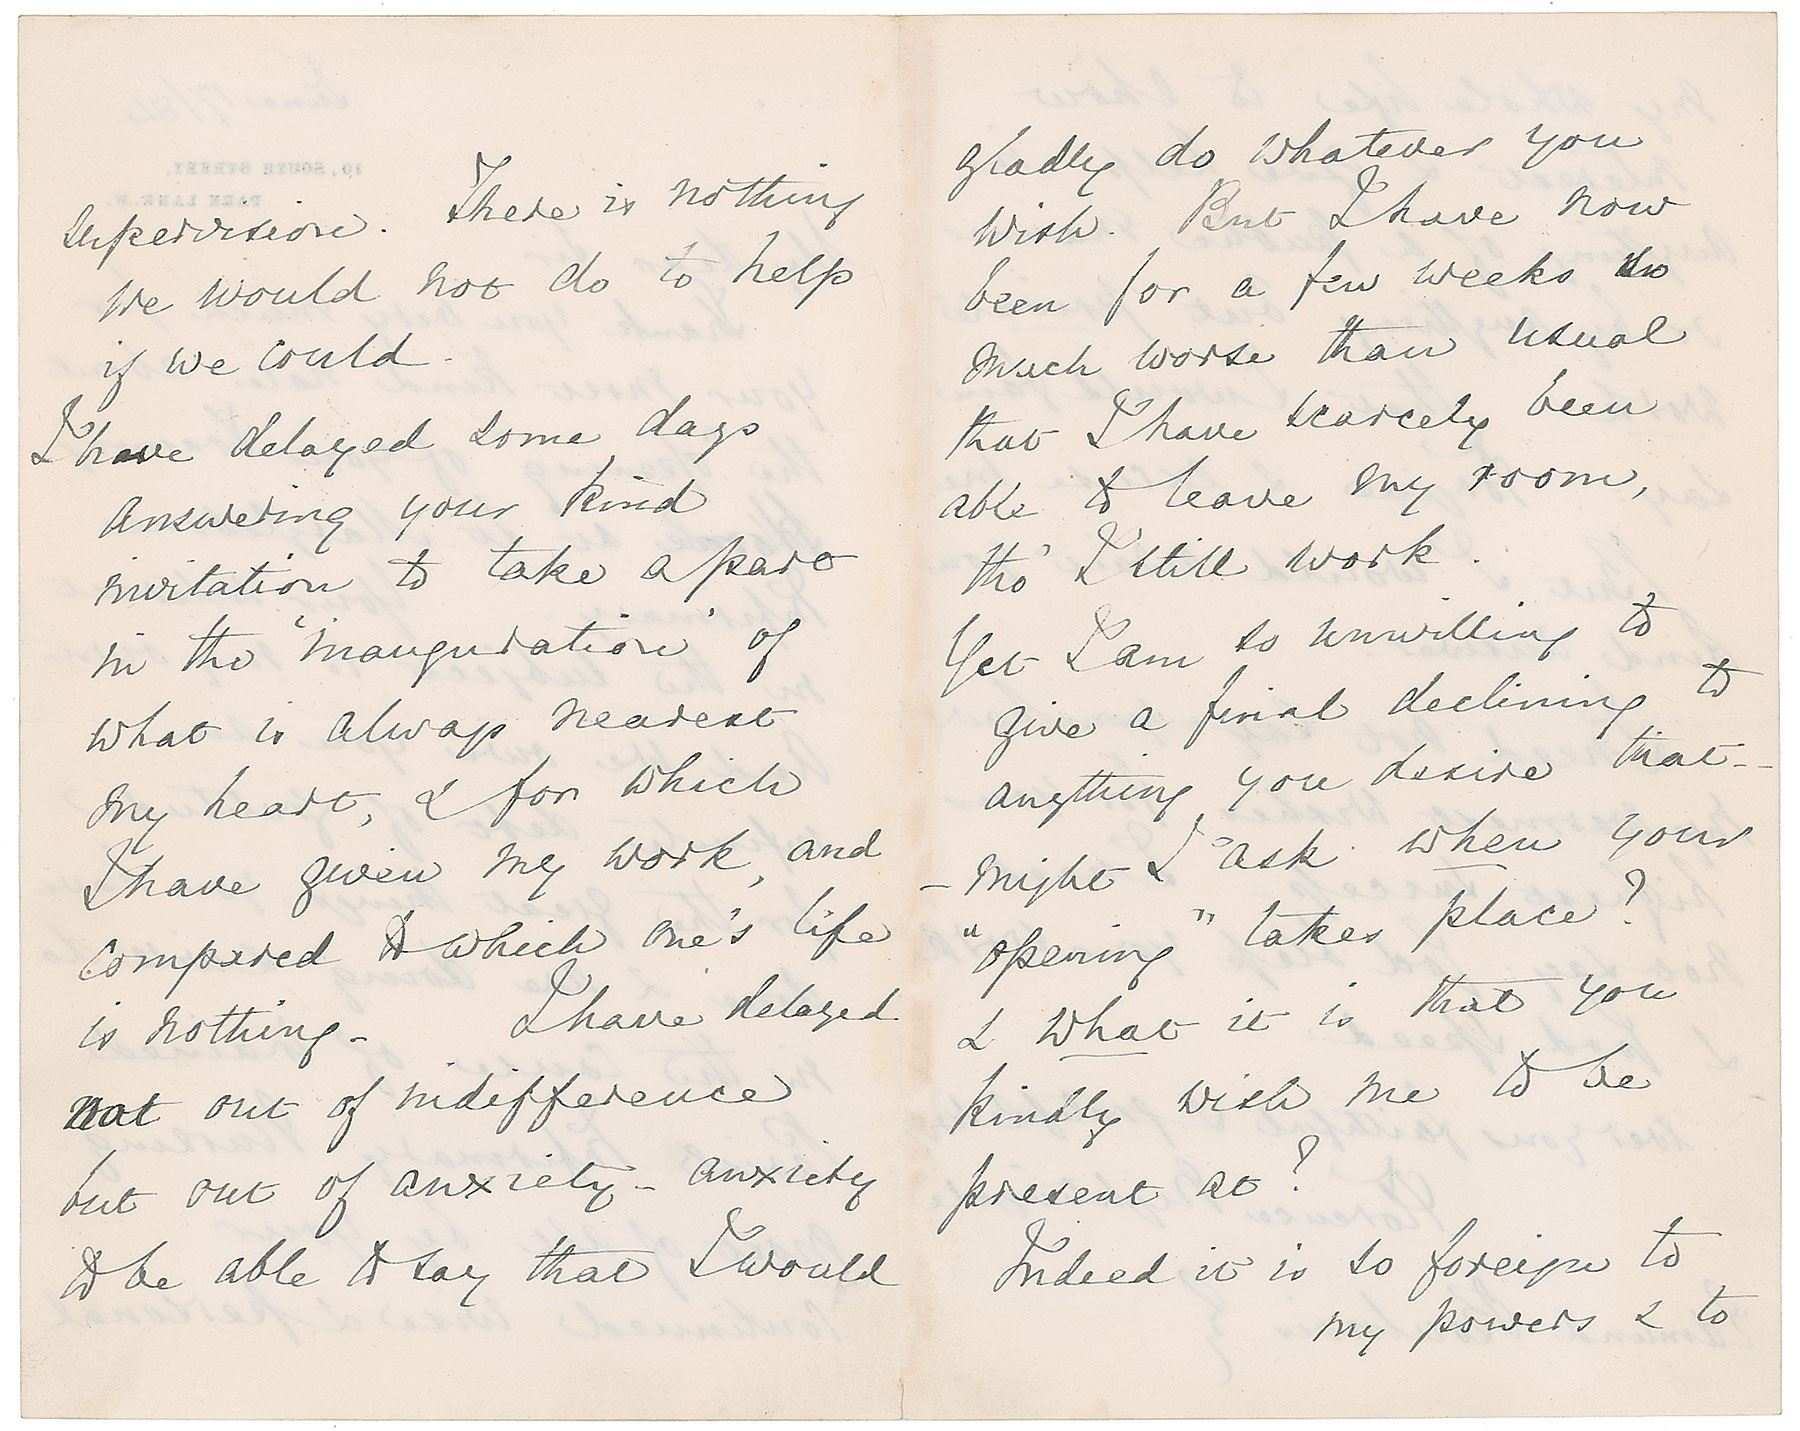 supervision. There is nothing
we would not do to help
if we could.
I have delayed some days
answering your kind
invitation to take a part
in the 'inauguration' of
what is always nearest
my heart, & for which
I have given my work, and
compared to which one's life
is nothing - I have delayed
not out of indifference
but out of anxiety - anxiety
to be able to say that I would
gladly do whatever you
wish. But I have now
been for a few weeks so
much worse than usual
that I have scarcely been
able to leave my room,
tho' I still work.
Yet I am so unwilling to
give a final declining to
anything you desire that -
- might I ask when your
"opening" takes place?
& what it is that you
kindly wish me to be
present at?
Indeed it is so foreign to
my powers & to
10, SOUTH STREET,
PARK LANE. W.